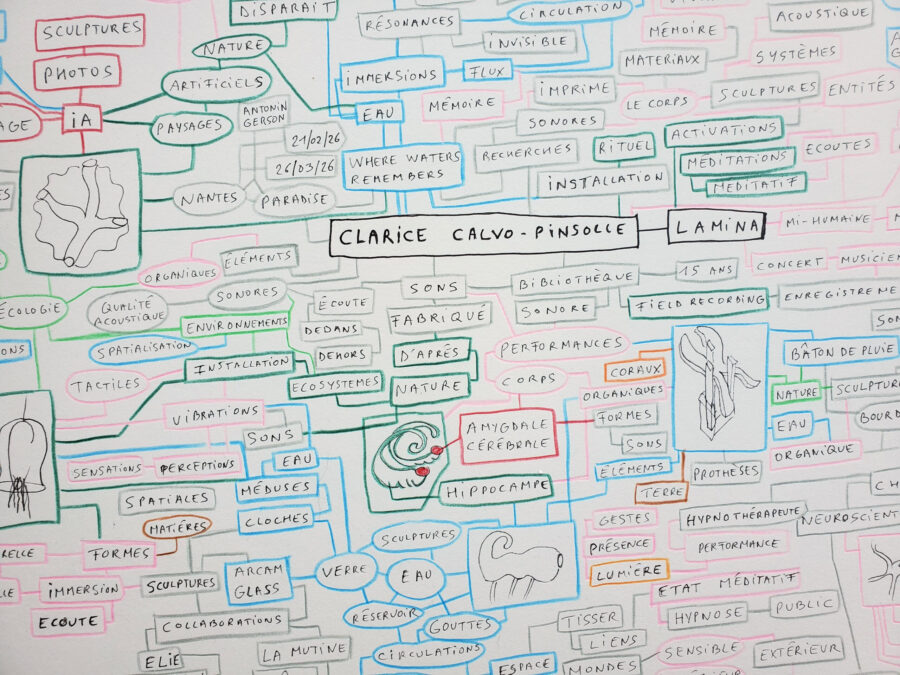 DISPARAIT
SCULPTURES
PHOTOS
iA
NATURE
ARTIFICIELS
PAYSAGES
ANTONIN
GERSON
RÉSONANCES
CIRCULATION
INVISIBLE
IMMERSIONS
FLUX
EAU
MÉMOIRE
MÉMOIRE
MATERIAUX
ACOUSTIQUE
SYSTÈMES
IMPRIME
LE CORPS
SCULPTURES
ENTITÉS
SONORES
RECHERCHES
RITUEL
ACTIVATIONS
MEDITATIONS
MEDITATIF
ECOUTES
INSTALLATION
21/02/26
26/03/26
WHERE WATERS
REMEMBERS
NANTES
PARADISE
CLARICE CALVO-PINSOLLE
LAMINA
MI-HUMAINE
ÉLÉMENTS
ORGANIQUES
SONORES
ÉCOLOGIE
QUALITÉ
ACOUSTIQUE
ENVIRONNEMENTS
SPATIALISATION
ÉCOUTE
DEDANS
DEHORS
INSTALLATION
ECOSYSTEMES
TACTILES
SONS
FABRIQUÉ
D'APRÈS
NATURE
BIBLIOTHÈQUE
SONORE
15 ANS
CONCERT
FIELD RECORDING
PERFORMANCES
CORPS
CORAUX
ORGANIQUES
FORMES
SONS
ÉLÉMENTS
TERRE
PROTHÈSES
BÂTON DE PLUIE
NATURE
EAU
ORGANIQUE
VIBRATIONS
SONS
SENSATIONS
PERCEPTIONS
EAU
MÉDUSES
CLOCHES
SPATIALES
MATIÉRES
FORMES
AMYGDALE
CÉRÉBRALE
HIPPOCAMPE
SCULPTURES
VERRE
EAU
RÉSERVOIR
GOUTTES
CIRCULATIONS
IMMERSION
ECOUTE
SCULPTURES
ARCAM
GLASS
COLLABORATIONS
ELIE
LA MUTINE
GESTES
PRÉSENCE
LUMIÈRE
HYPNOTHÉRAPEUTE
PERFORMANCE
ETAT MÉDITATIF
HYPNOSE
PUBLIC
TISSER
LIENS
MONDES
ESPACE
SENSIBLE
EXTÉRIEUR